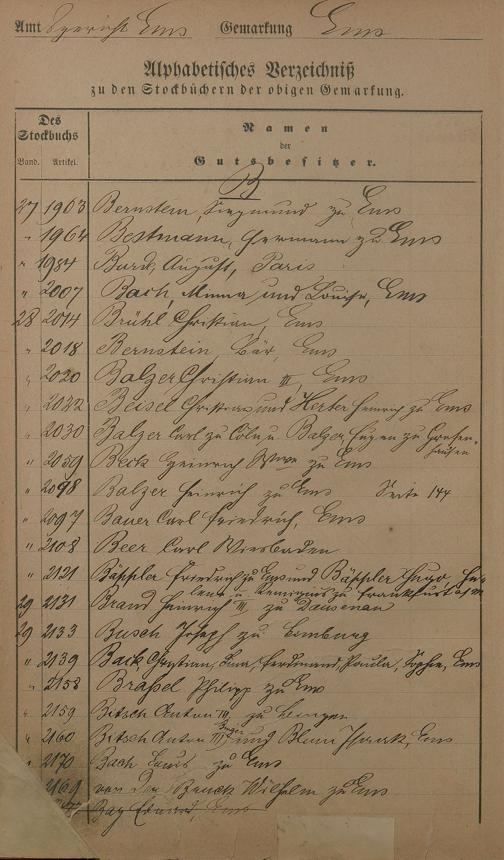 Amt Sgericht Ems Gemarkung Ems
Alphabetisches Verzeichniß
zu den Stockbüchern der obigen Gemarkung.
Des
Stockbuchs
Band. Artikel.
Namen
der
Gutsbesitzer.
B
27 1903 Bernstein, Siegmund zu Ems
" 1964 Bestmann, Hermann zu Ems
" 1984 Burd, August, Paris
" 2007 Bach, Minna und Louise, Ems
28 2014 Brühl Christian, Ems
" 2018 Bernstein, Bär, Ems
" 2020 Balzer, Christian III, Ems
" 2022 Beisel Christian und Herter Heinrich zu Ems
" 2030 Balzer Carl zu Cöln u. Balzer, Eugen zu
" 2059 Beck Heinrich Wwe zu Ems
" 2098 Balzer Heinrich zu Ems Seite 144
" 2097 Bauer Carl Friedrich, Ems
" 2108 Beer Carl Wiesbaden
" 2121 Bäppler Friedrich zu Ems und Bäppler Hugo,
und Remigius zu Frankfurt a/M
29 2131 Brand Heinrich III, zu Dausenau
29 2133 Busch Joseph zu Limburg
" 2139 Back Christian, Lina, Ferdinand, Paula, Sophie, Ems
" 2158 Braßel Philipp zu Ems
" 2159 Bitsch Anton III, zu Bingen
" 2160 Bitsch Anton III, und Blum Isaack, Ems
" 2170 Bach Louis zu Ems
2169 von der Bruck Wilhelm zu Ems
Bay Eduard, Ems